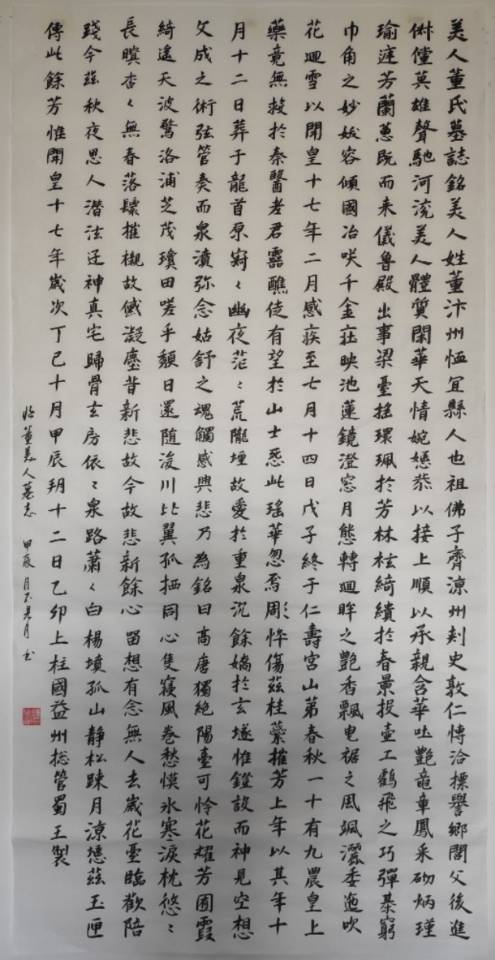 美人董氏墓誌銘美人姓董汴州恤宜縣人也祖佛子齊涼州刾史敦仁慱洽摽譽鄉閭父後進
俶儻英雄聲馳河浣美人體質閑華天情婉嫕恭以接上順以承親含華吐艷龍章鳳采砌炳瑾
瑜庭芳蘭蕙既而来儀魯殿出事梁臺摇環珮於芳林袨綺繢於春景投壷工鶴飛之巧彈棊窮
巾角之妙妖容傾國冶咲千金莊映池蓮鏡澄窓月態轉迴眸之艷香飄曳裾之風颯灑委迤吹
花迴雪以開皇十七年二月感疾至七月十四日戊子終于仁壽宮山第春秋一十有九農皇上
藥竟無救於秦醫老君靈醮徒有望於山士悉此瑶華忽焉彫悴傷茲桂蘂摧芳上年以其年十
月十二日葬于龍首原寂〻幽夜茫〻荒隴埋故愛於重泉沉餘嬌於玄隧惟鐙設而神見空想
文成之術弦管奏而泉濆弥念姑舒之魂觸感興悲乃為銘曰高唐獨絕陽臺可怜花耀芳囿霞
綺遥天波驚洛浦芝茂瓊田嗟乎頽日還随浚川比翼孤栖同心隻寢風卷愁慔氷寒淚枕悠〻
長暝杳〻無春落髹摧櫬故黛凝塵昔新悲故今故悲新餘心留想有念無人去歲花臺臨歡陪
踐今茲秋夜思人潜泫迋神真宅歸骨玄房依〻泉路蕭〻白楊墳孤山靜松踈月涼瘞茲玉匣
傳此餘芳惟開皇十七年歲次丁巳十月甲辰朔十二日乙卯上柱國益州摠管蜀王製
临董美人墓志 甲辰